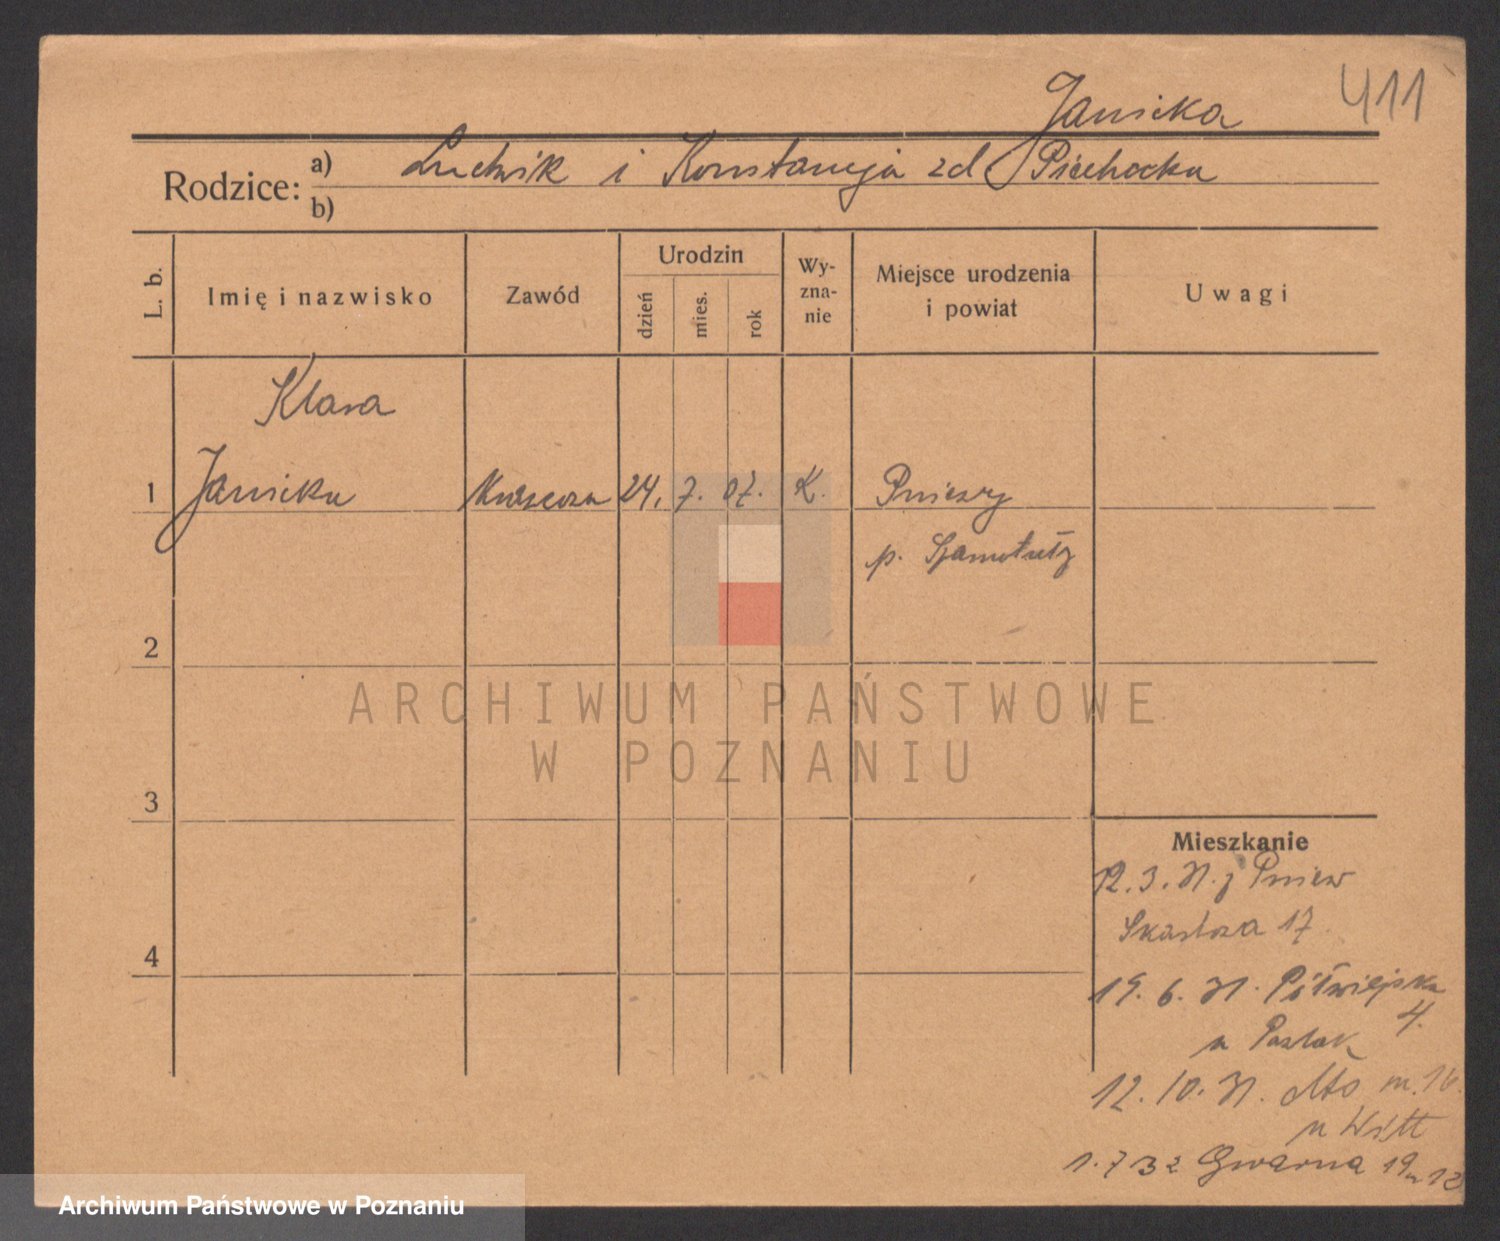 411
Janicka
Rodzice: a) Ludwik i Konstancja zd Piechocka
b)
L. b.
Imię i nazwisko
Zawód
Urodzin
dzień
mies.
rok
Wy-
zna-
nie
Miejsce urodzenia
i powiat
Uwagi
Klara
1 Janicka 24. 7. 07. K. Pniewy
p. Szamotuły
2
3
4
Mieszkanie
12. 3. 31. z Pniew
17
19. 6. 31. Półwiejska
4.
12. 10. 31. m. 16.
u Witt
1. 7 32 Gwarna 19 m 12
ARCHIWUM PAŃSTWOWE
W POZNANIU
Archiwum Państwowe w Poznaniu